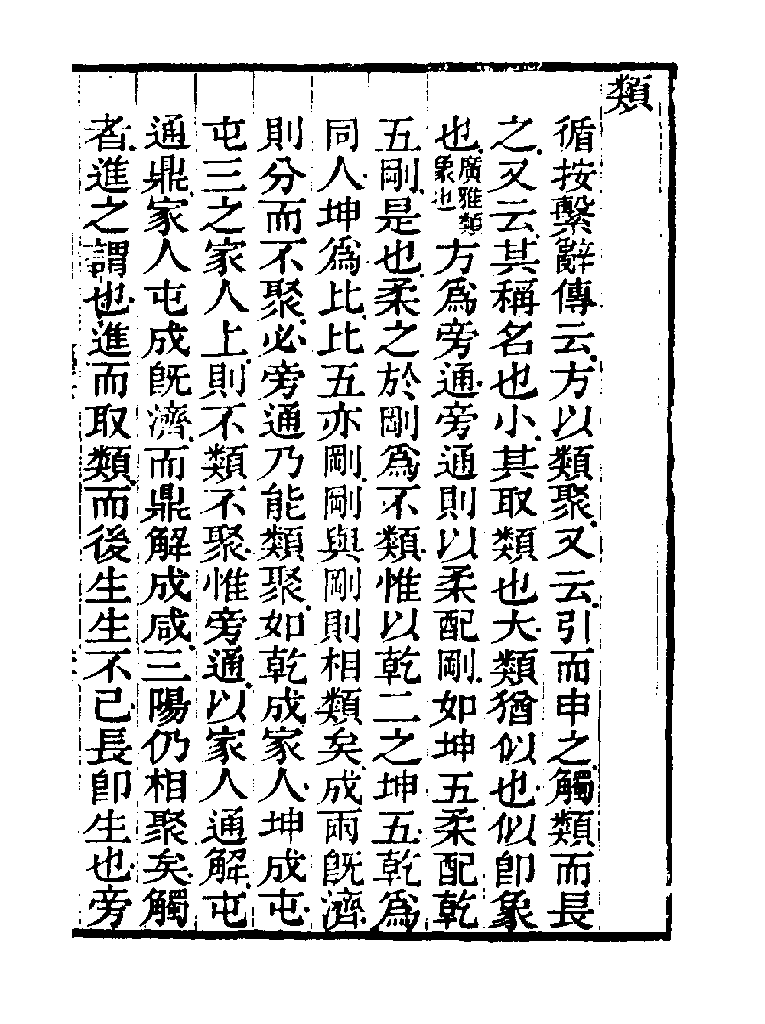 類
循按繫辭傳云方以類聚又云引而申之觸類而長
之又云其稱名也小其取類也大類猶似也似卽象
也廣雅類象也方爲旁通旁通則以柔配剛如坤五柔配乾
五剛是也柔之於剛爲不類惟以乾二之坤五乾爲
同人坤爲比比五亦剛剛與剛則相類矣成兩旣濟
則分而不聚必旁通乃能類聚如乾成家人坤成屯
屯三之家人上則不類不聚惟旁通以家人通解屯
通鼎家人屯成旣濟而鼎解成咸三陽仍相聚矣觸
者進之謂也進而取類而後生生不已長卽生也旁